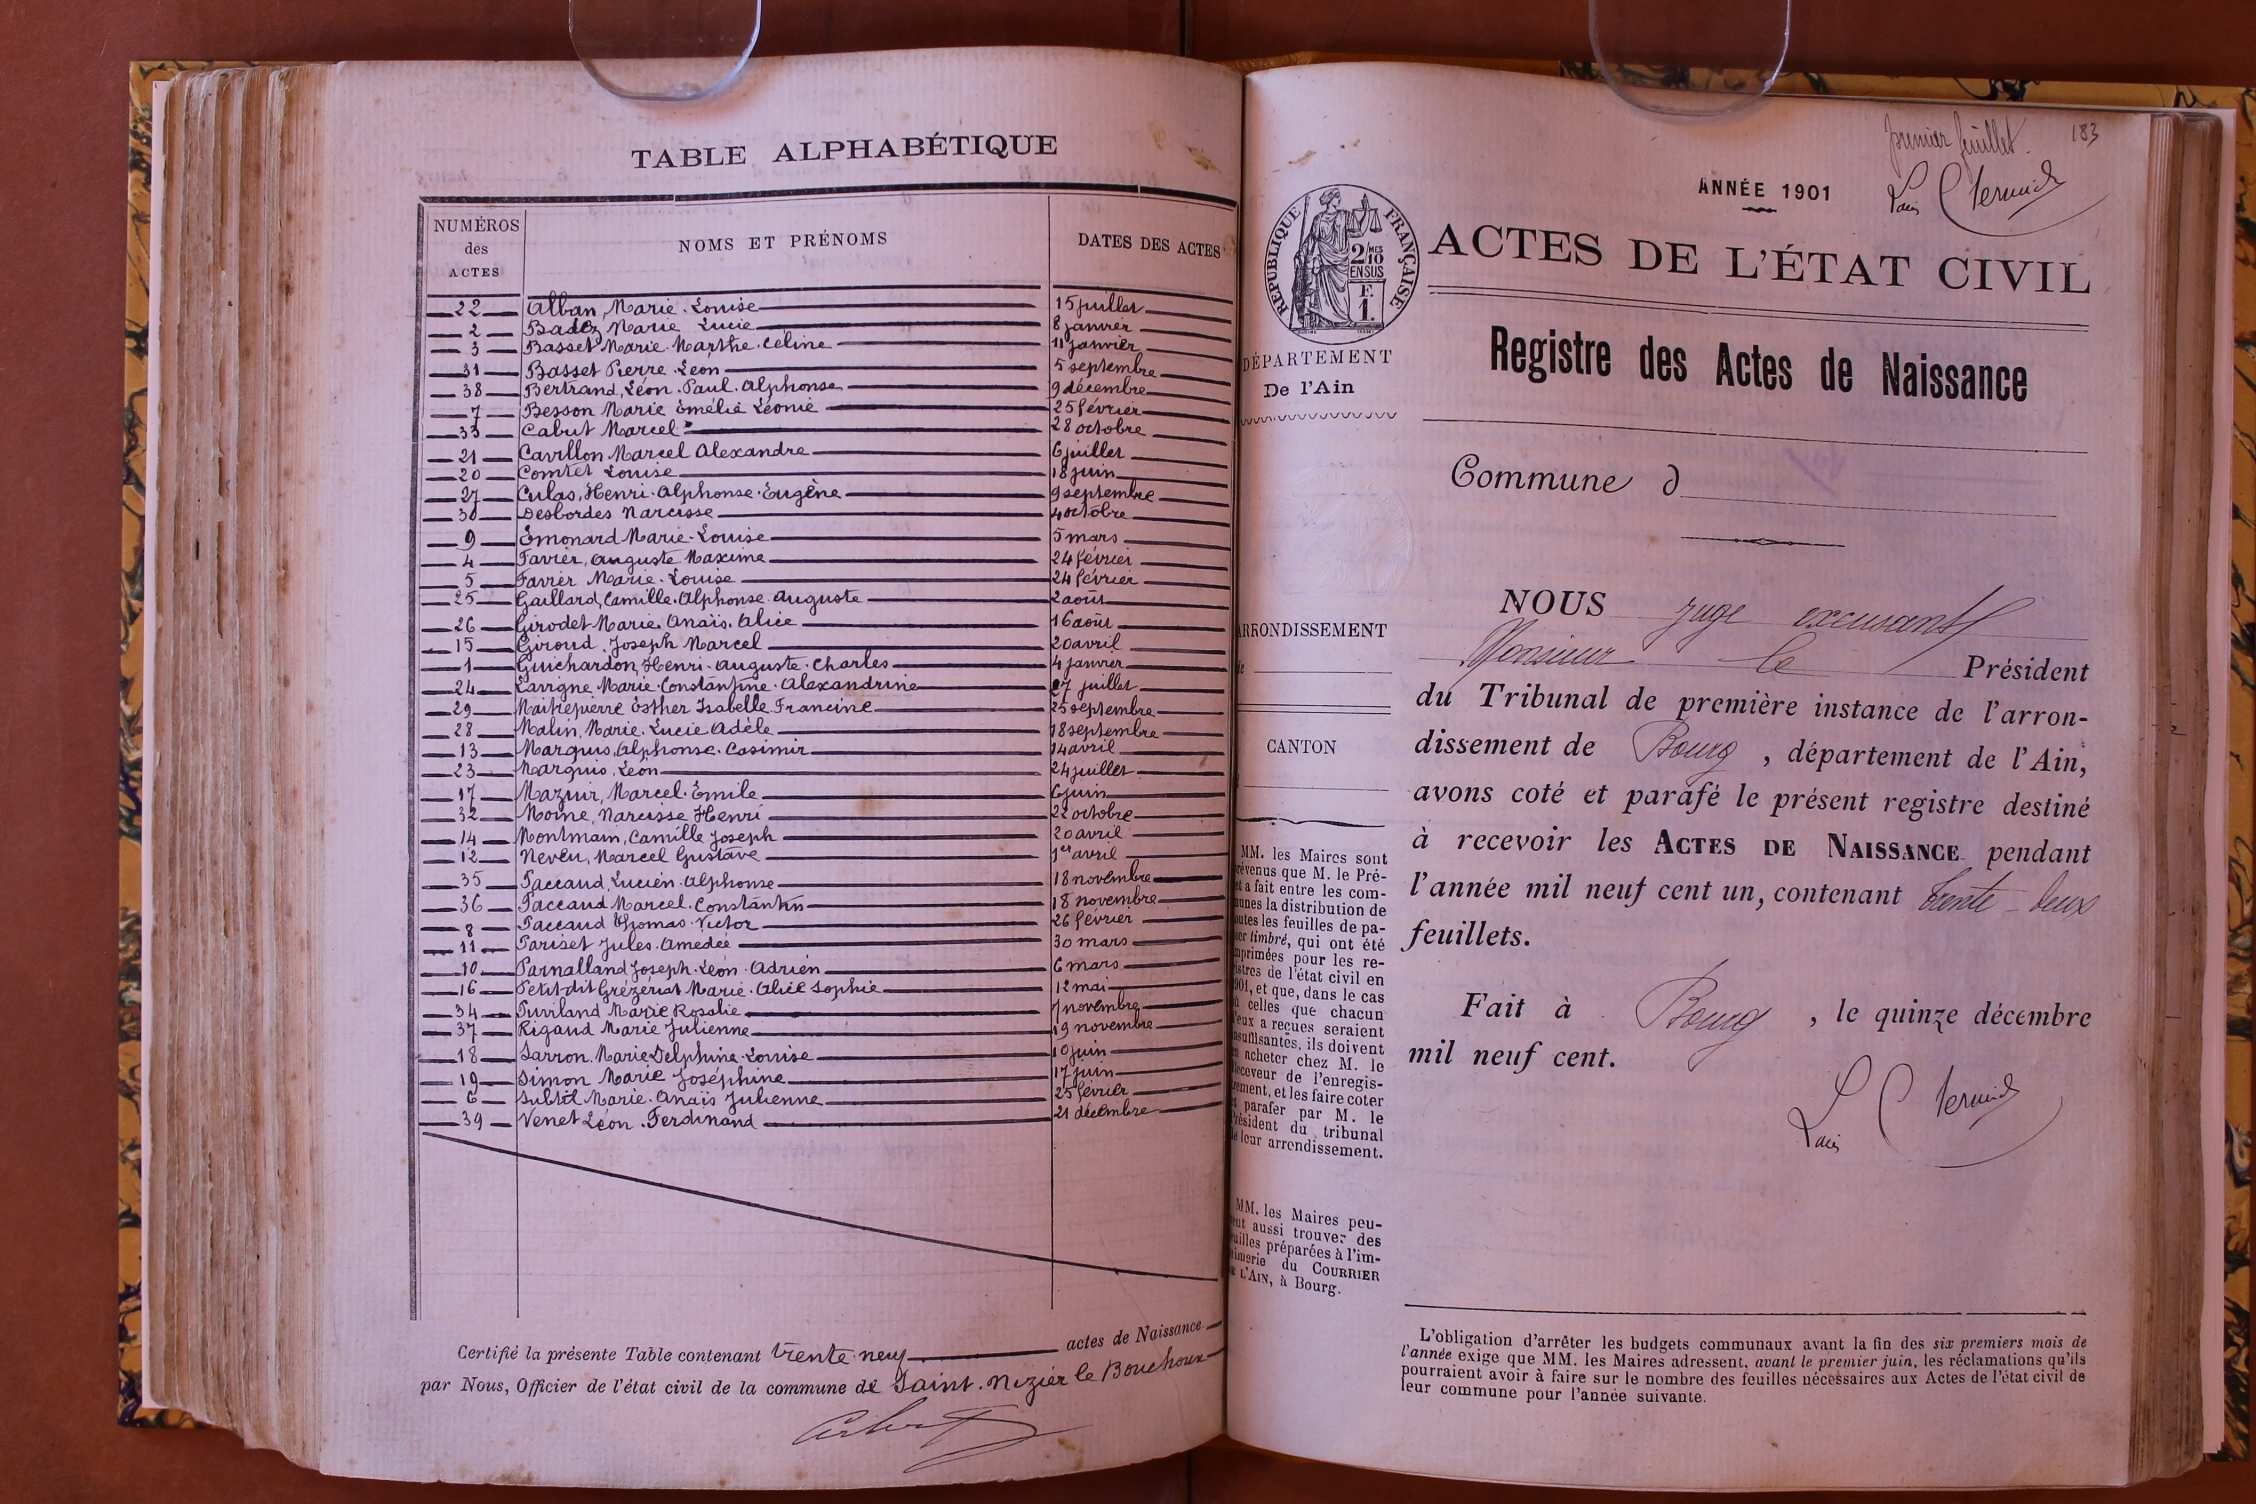 TABLE ALPHABÉTIQUE
NUMÉROS des ACTES NOMS ET PRÉNOMS DATES DES ACTES
22 Alban, Marie. Louise 15 juillet
2 Badez Marie Lucie 8 janvier
3 Basset Marie. Marthe. Céline 11 janvier
31 Basset Pierre. Léon 5 septembre
38 Bertrand, Léon. Paul. Alphonse 9 décembre
7 Besson Marie Emélie Léonie 25 février
33 Cabut Marcel 28 octobre
21 Cavillon Marcel Alexandre 6 juillet
20 Comtet Louise 18 juin
27 Culas, Henri. Alphonse. Eugène 9 septembre
30 Desbordes Narcisse 4 octobre
9 Emonard Marie. Louise 5 mars
4 Favier, Auguste Maxime 24 février
5 Favier Marie. Louise 24 février
25 Gaillard, Camille. Alphonse. Auguste 2 août
26 Girodet Marie. Anaïs. Alice 16 août
15 Giroud, Joseph Marcel 20 avril
1 Guichardon, Henri. Auguste. Charles 4 janvier
24 Lavigne Marie. Constantine. Alexandrine 27 juillet
29 Maitrepierre Esther Isabelle Francine 25 septembre
28 Malin, Marie. Lucie Adèle 18 septembre
13 Marquis, Alphonse. Casimir 14 avril
23 Marquis, Léon 24 juillet
17 Mazuir, Marcel. Emile 6 juin
32 Moine, Narcisse Henri 22 octobre
14 Montmain, Camille Joseph 20 avril
12 Neveu, Marcel Gustave 1er avril
35 Paccaud, Lucien. Alphonse 18 novembre
36 Paccaud Marcel. Constantin 18 novembre
8 Paccaud Thomas. Victor 26 février
11 Pariset Jules. Amedée 30 mars
10 Parnalland Joseph. Léon. Adrien 6 mars
16 Petit dit Grézeriat Marie. Alice Sophie 12 mai
34 Puviland Marie Rosalie 7 novembre
37 Rigaud Marie Julienne 19 novembre
18 Sarron. Marie Delphine. Louise 10 juin
19 Simon Marie Joséphine 17 juin
6 Subtil Marie. Anaïs Julienne 25 février
39 Venet Léon. Ferdinand 21 décembre
Certifié la présente Table contenant trente neuf actes de Naissance
par Nous, Officier de l'état civil de la commune de Saint. Nizier le Bouchoux
premier feuillet. 183
ANNÉE 1901
RÉPUBLIQUE FRANÇAISE
2/10 MES
EN SUS
F.
1.
ACTES DE L'ÉTAT CIVIL
Registre des Actes de Naissance
DÉPARTEMENT
De l'Ain
Commune d
ARRONDISSEMENT
CANTON
NOUS juge excusant
Monsieur le Président
du Tribunal de première instance de l'arron-
dissement de Bourg, département de l'Ain,
avons coté et parafé le présent registre destiné
à recevoir les ACTES DE NAISSANCE pendant
l'année mil neuf cent un, contenant trente-deux
feuillets.
Fait à Bourg, le quinze décembre
mil neuf cent.
MM. les Maires sont
prévenus que M. le Pré-
et a fait entre les com-
munes la distribution de
toutes les feuilles de pa-
pier timbré, qui ont été
imprimées pour les re-
gistres de l'état civil en
1901, et que, dans le cas
où celles que chacun
d'eux a reçues seraient
insuffisantes, ils doivent
en acheter chez M. le
Receveur de l'enregis-
trement, et les faire coter
et parafer par M. le
Président du tribunal
de leur arrondissement.
MM. les Maires peu-
vent aussi trouver des
feuilles préparées à l'im-
primerie du COURRIER
DE L'AIN, à Bourg.
L'obligation d'arrêter les budgets communaux avant la fin des six premiers mois de
l'année exige que MM. les Maires adressent, avant le premier juin, les réclamations qu'ils
pourraient avoir à faire sur le nombre des feuilles nécessaires aux Actes de l'état civil de
leur commune pour l'année suivante.